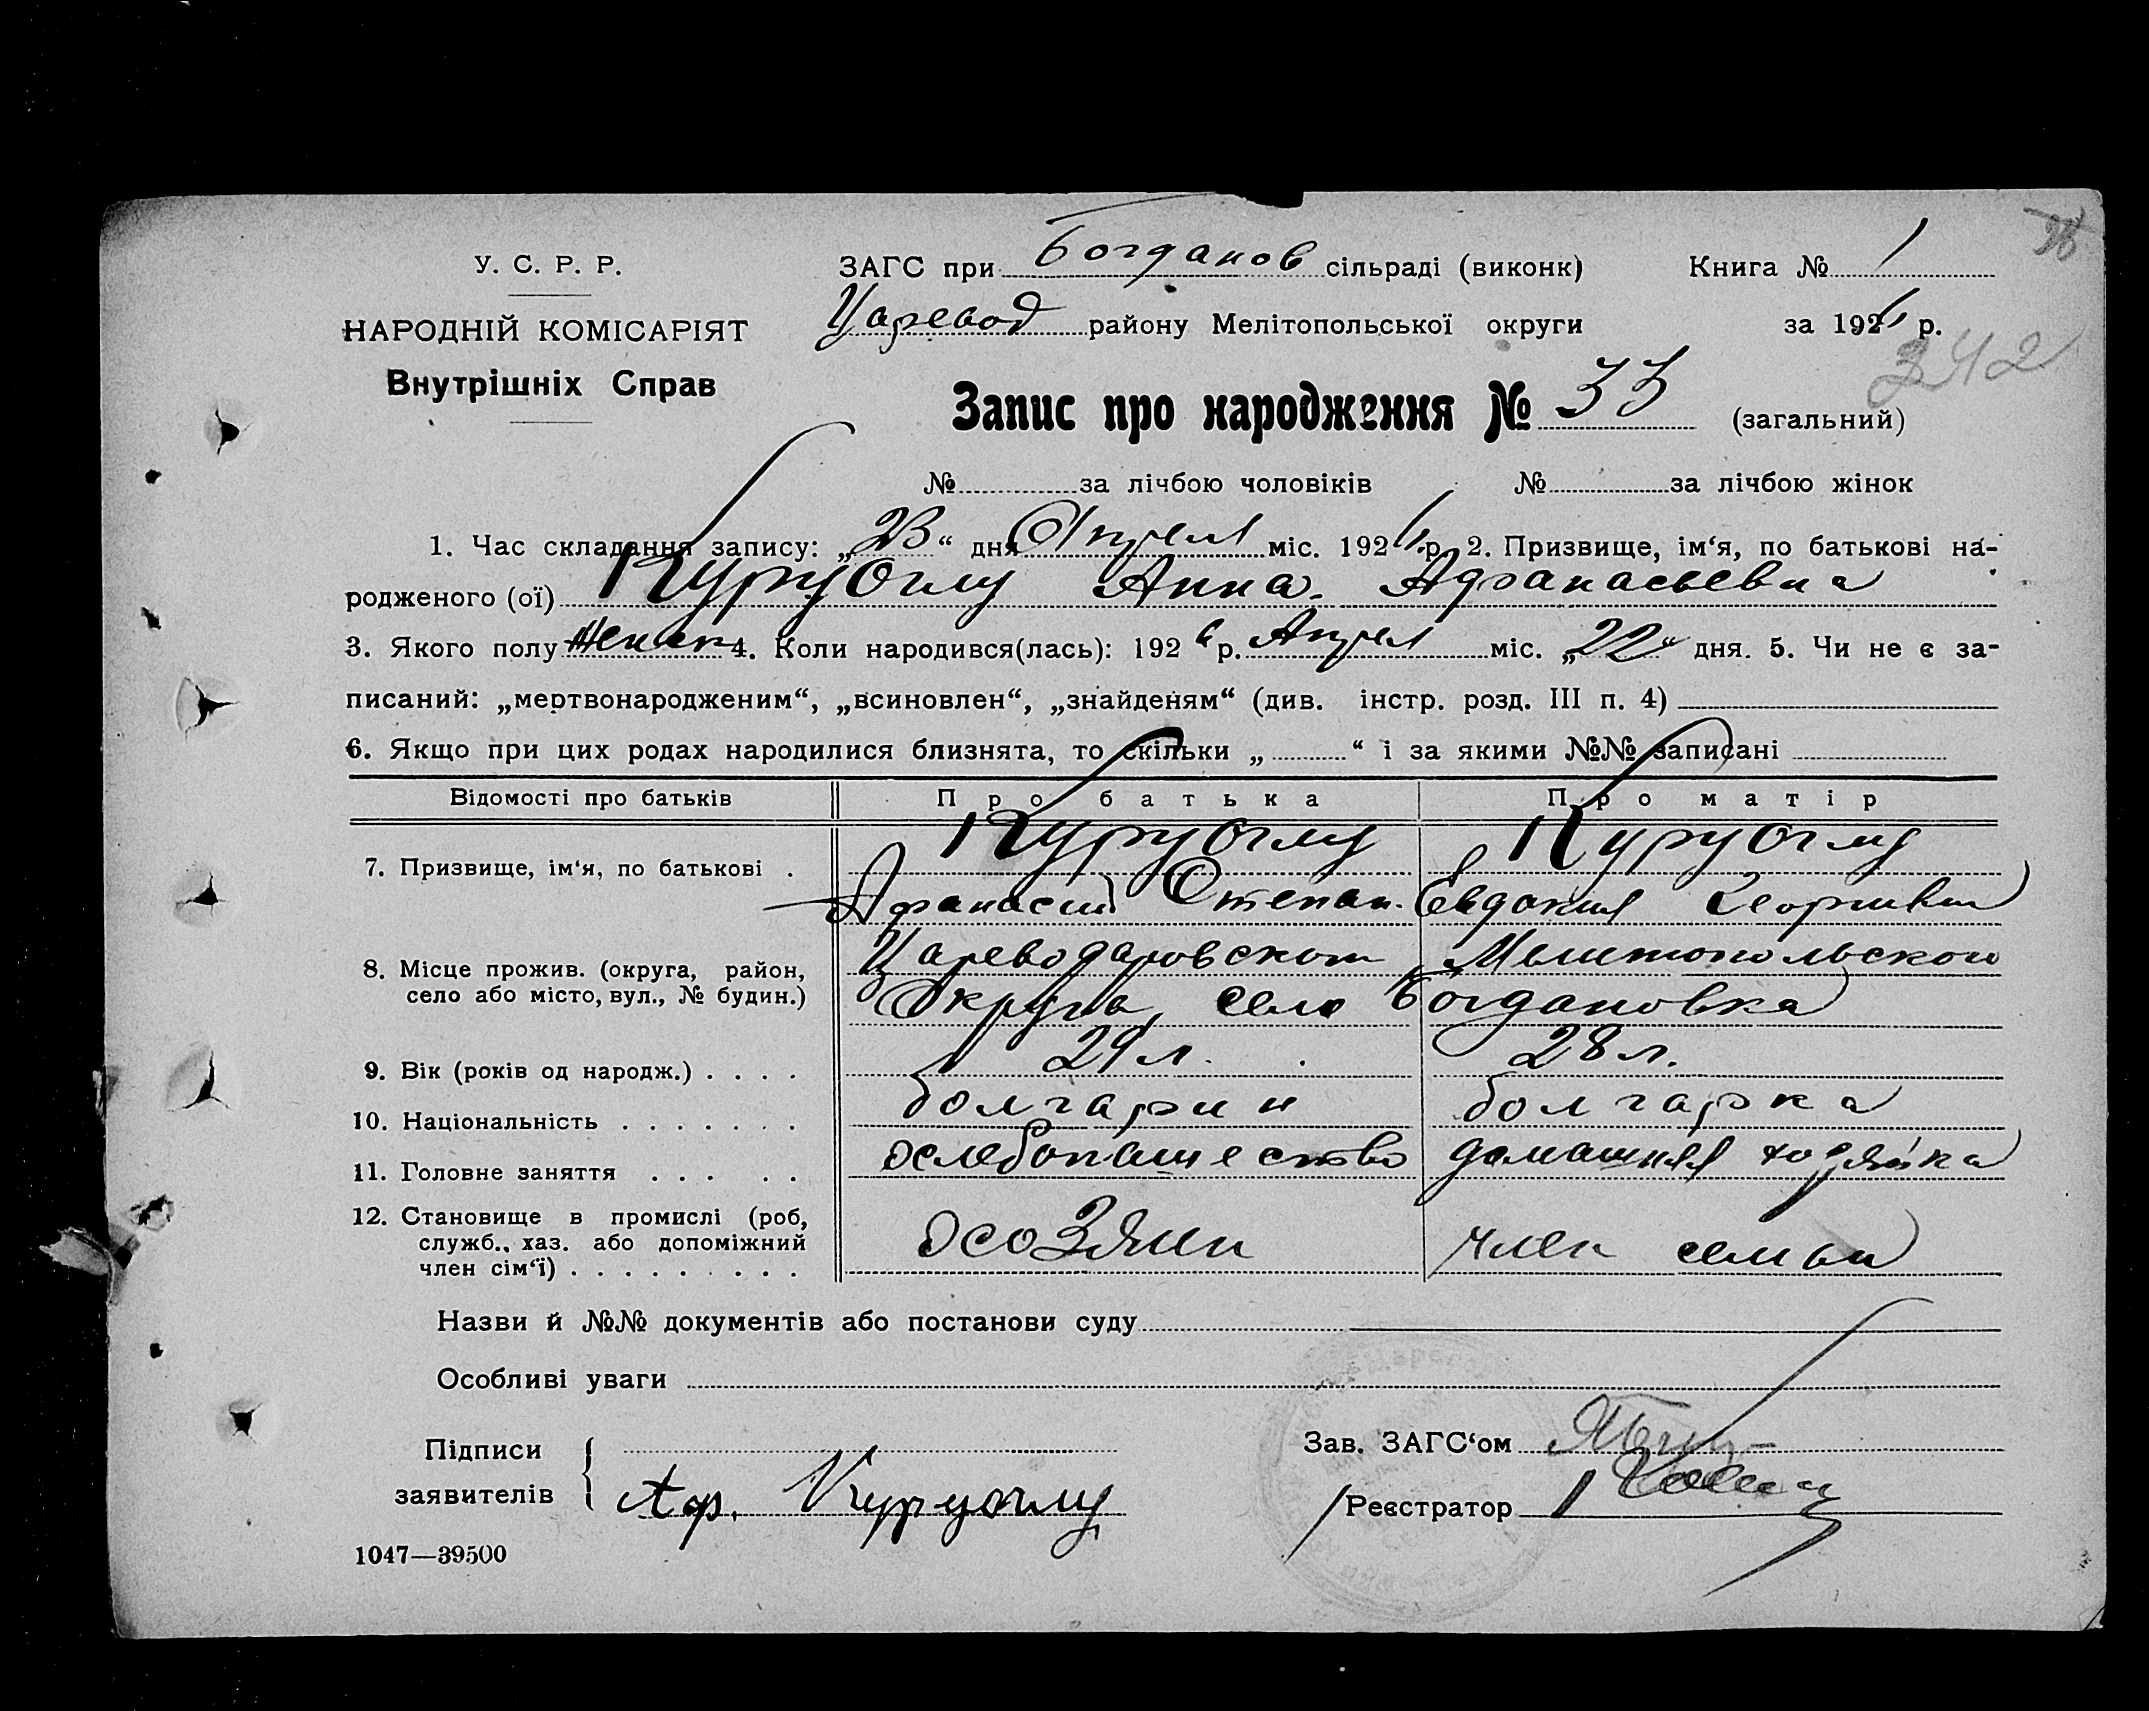 У. С. Р. Р.
НАРОДНІЙ КОМІСАРІЯТ
Внутрішніх Справ
ЗАГС при Богданов сільраді (виконк) Книга № 1
Царевод району Мелітопольської округи за 1926 р.
342
Запис про народження № 33 (загальний)
№ за лічбою чоловіків № за лічбою жінок
1. Час складання запису: „23“ дня Апрел міс. 1926 р. 2. Призвище, ім‘я, по батькові на-
родженого (ої) Куруоглу Анна Афанасьевна
3. Якого полу женск 4. Коли народився(лась): 1926 р. Апрел міс. „22“ дня. 5. Чи не є за-
писаний: „мертвонародженим“, „всиновлен“, „знайденям“ (див. інстр. розд. III п. 4)
6. Якщо при цих родах народилися близнята, то скільки „ “ і за якими №№ записані
Відомості про батьків Про батька Про матір
7. Призвище, ім‘я, по батькові . Куруоглу Куруоглу
Афанасий Степан. Евдокия Георгивна
8. Місце прожив. (округа, район, село або місто, вул., № будин.) Цареводаровского Мелитопольского
Округа, село Богдановка
9. Вік (років од народж.) . . . . 29 л. 28 л.
10. Національність . . . . . . . болгарин болгарка
11. Головне заняття . . . . . хлебопашество домашняя хозяйка
12. Становище в промислі (роб, служб., хаз. або допоміжний член сім‘ї) . . . . . . . . . хозяин член семьи
Назви й №№ документів або постанови суду
Особливі уваги
Підписи
заявителів Аф. Куруоглу
Зав. ЗАГС‘ом
Реєстратор
1047—39500